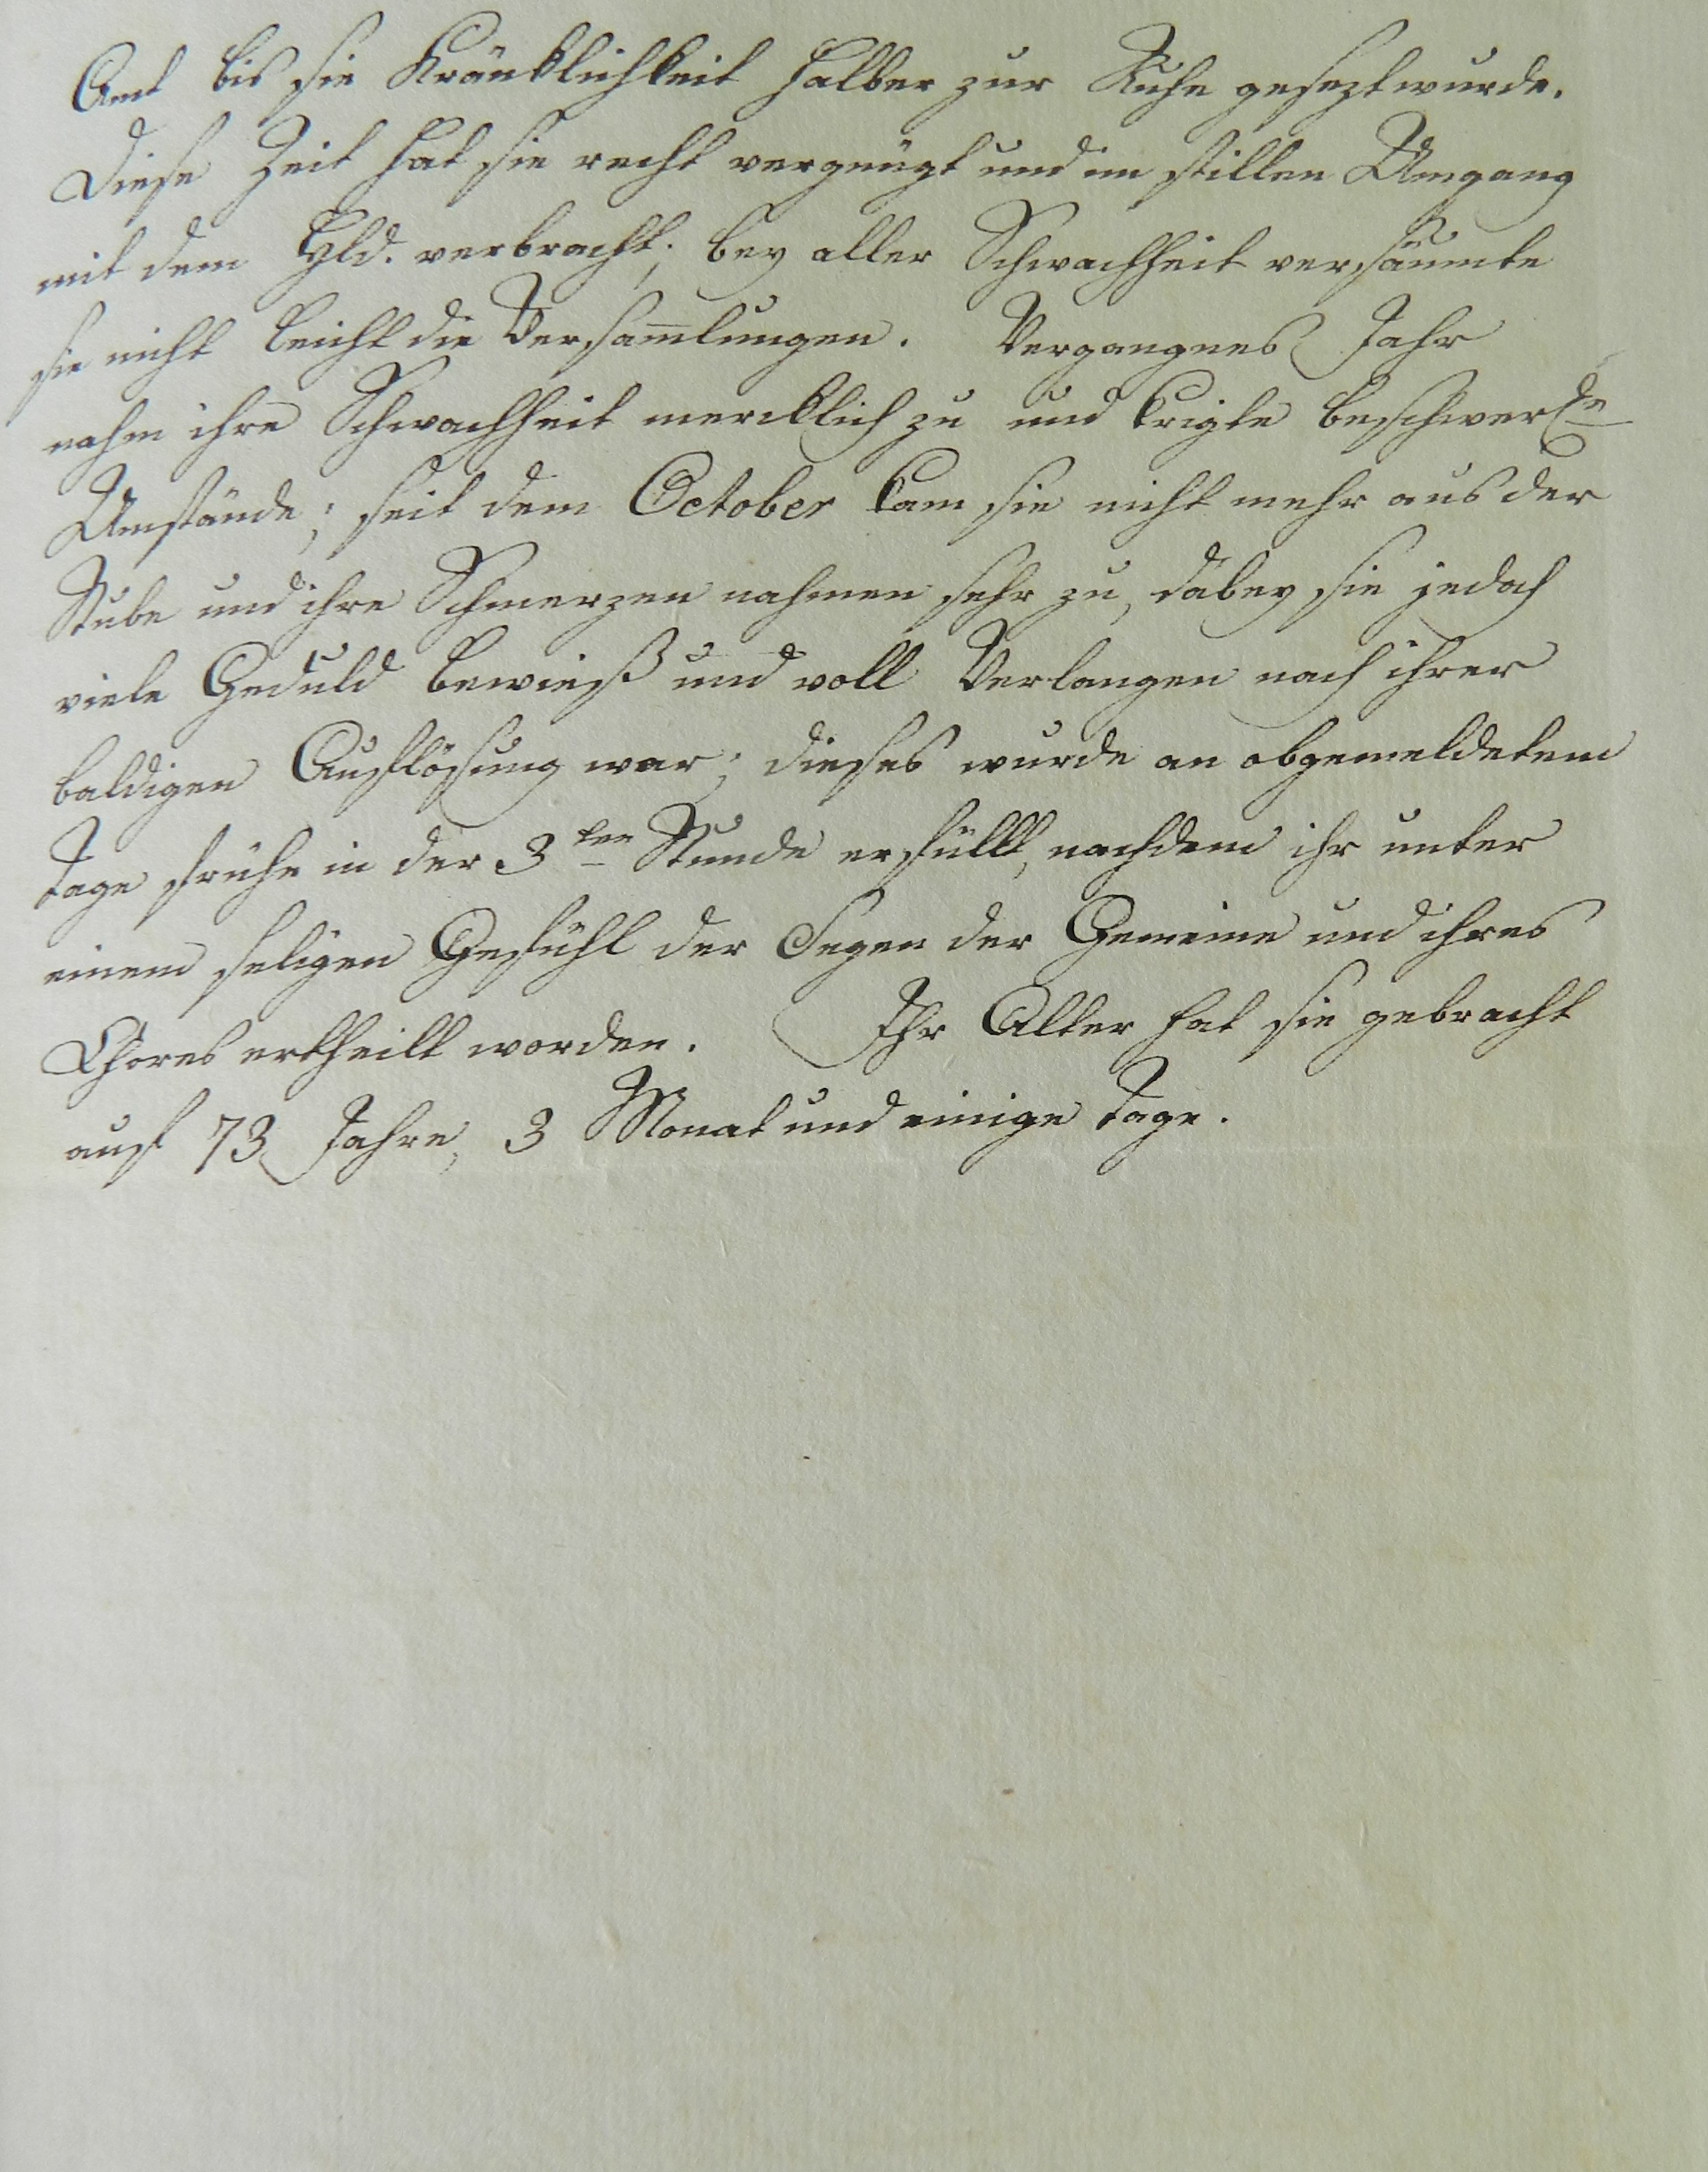 Amt bis sie Kränklichkeit halber zur Ruhe gesezt wurde.
Diese Zeit hat sie recht vergnügt und im stillen Umgang
mit dem Hld. verbracht; bey aller Schwachheit versäumte
sie nicht leicht die Versam̅lungen. Vergangnes Jahr
nahm ihre Schwachheit mercklich zu und krigte
Umstände; seit dem October kam sie nicht mehr aus der
Stube und ihre Schmerzen nahmen sehr zu, dabey sie jedoch
viele Geduld bewieß und voll Verlangen nach ihrer
baldigen Auflösung war; dieses wurde an obgemeldetem
Tage frühe in der 3ten Stunde erfüllt, nachdem ihr unter
einem seligen Gefühl der Segen der Gemeine und ihres
Chores ertheilt worden. Ihr Alter hat sie gebracht
auf 73 Jahre, 3 Monat und einige Tage.